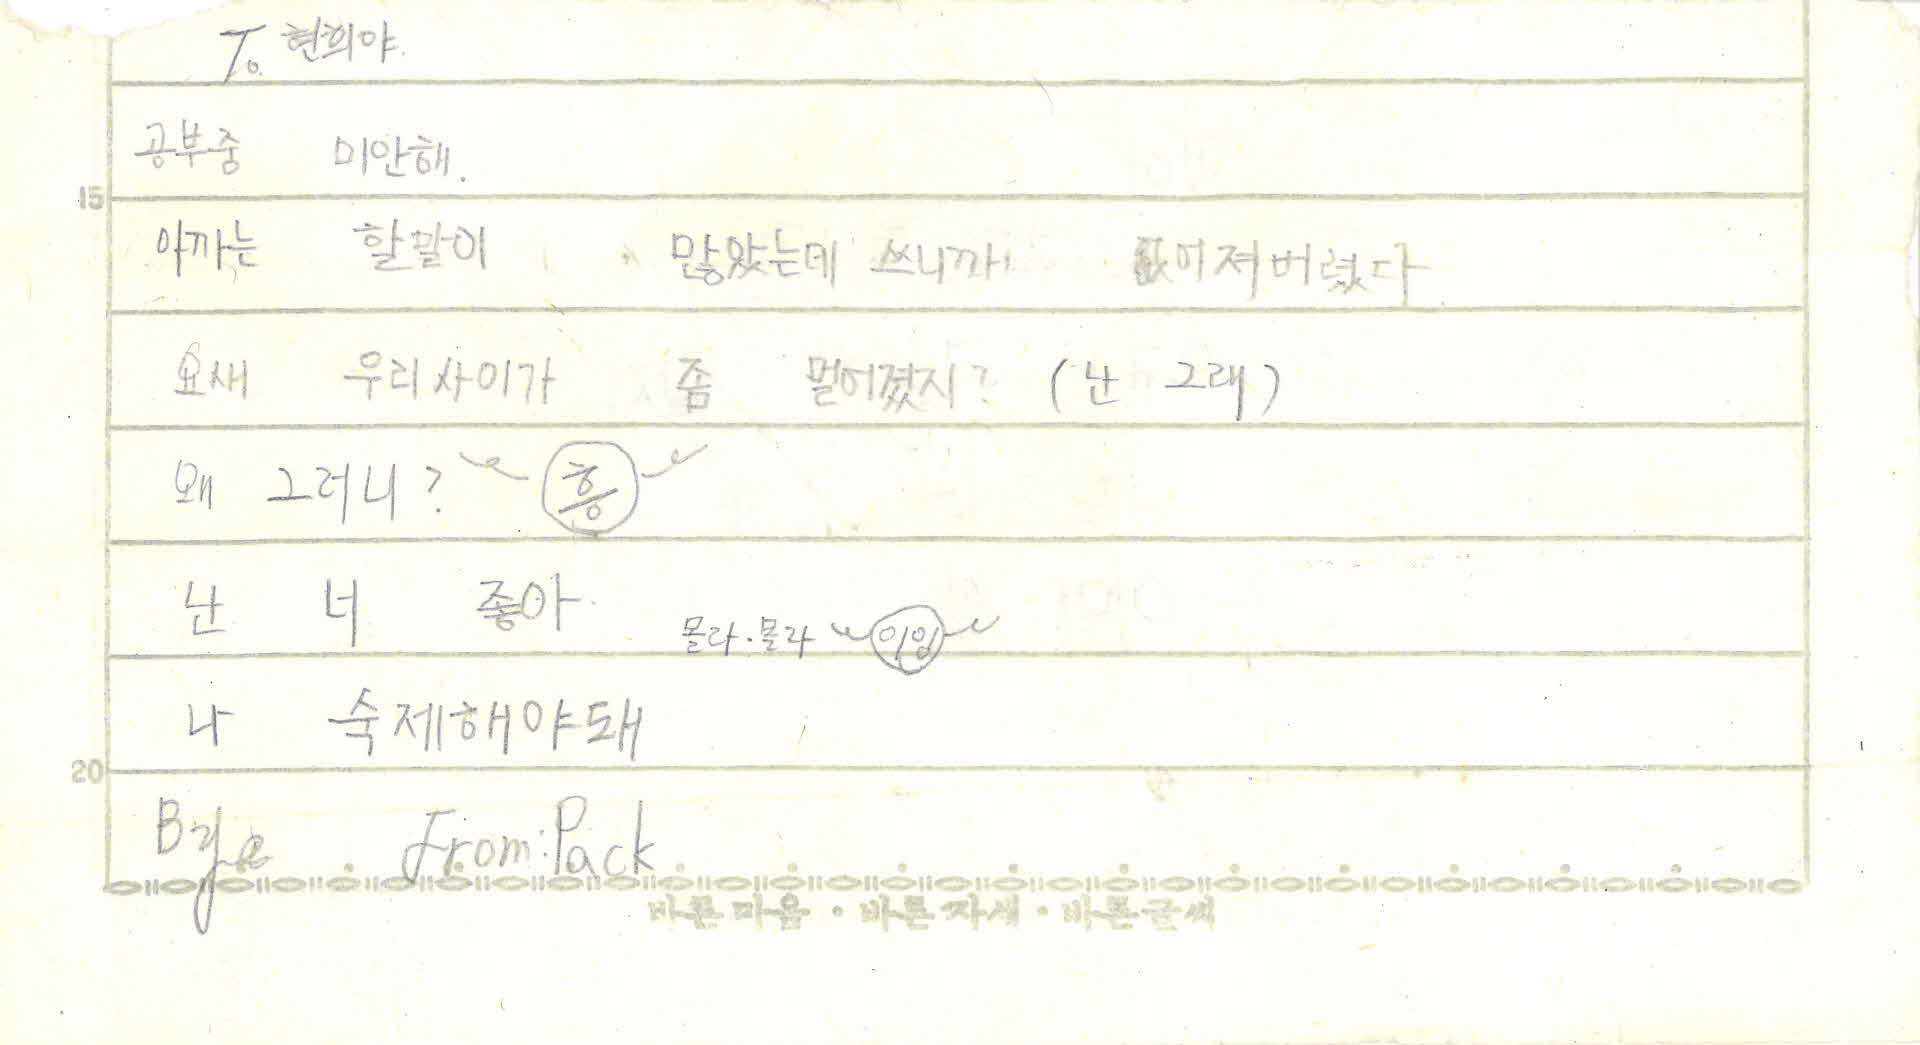 To. 현희야.
공부중 미안해.
15
아까는 할말이 많았는데 쓰니까 없어져버렸다
요새 우리사이가 좀 멀어졌지? (난 그래)
왜 그러니? 흥
난 너 좋아
몰라·몰라
나 숙제해야돼
20
Bye From: Pack
바른마음·바른자세·바른글씨